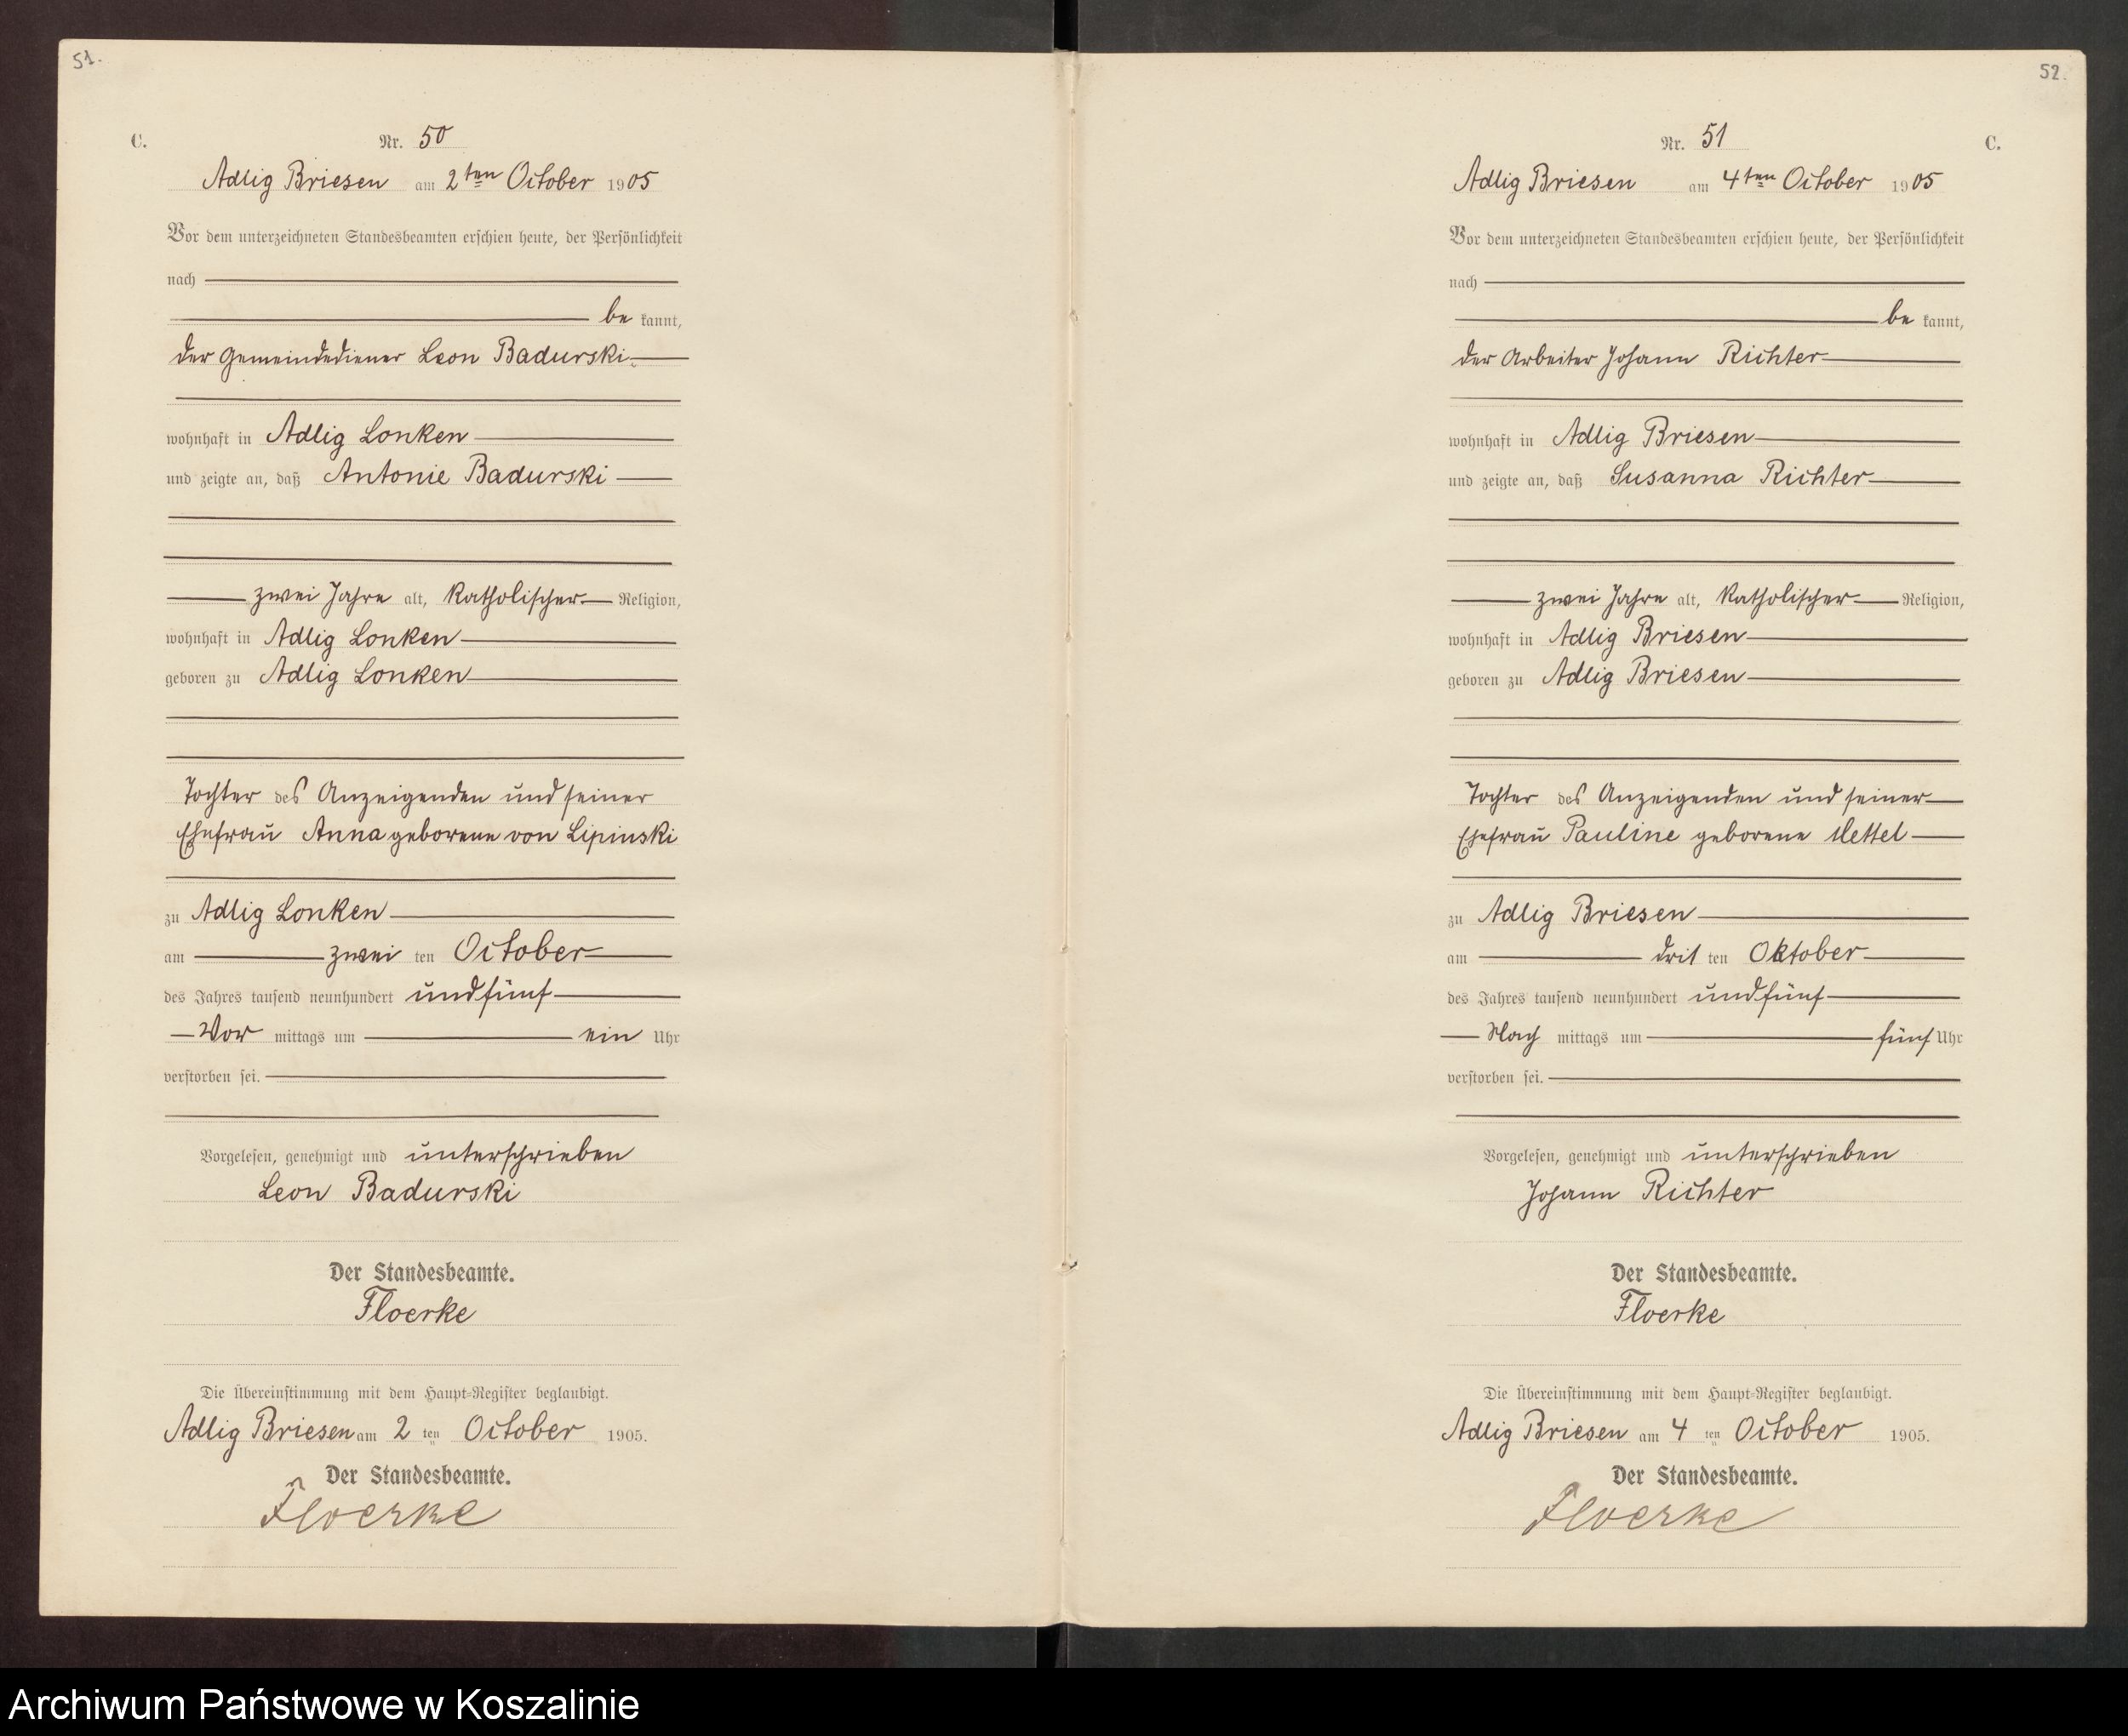 51.
C.
Nr. 50
Adlig Briesen am 2ten October 1905
Vor dem unterzeichneten Standesbeamten erschien heute, der Persönlichkeit
nach
be kannt,
der Gemeindediener Leon Badurski
wohnhaft in Adlig Lonken
und zeigte an, daß Antonie Badurski
zwei Jahre alt, Katholischer Religion,
wohnhaft in Adlig Lonken
geboren zu Adlig Lonken
Tochter des Anzeigenden und seiner
Ehefrau Anna geborene von Lipinski
zu Adlig Lonken
am zwei ten October
des Jahres tausend neunhundert und fünf
Vor mittags um ein Uhr
verstorben sei.
Vorgelesen, genehmigt und unterschrieben
Leon Badurski
Der Standesbeamte.
Floerke
Die Übereinstimmung mit dem Haupt-Register beglaubigt.
Adlig Briesen am 2 ten October 1905.
Der Standesbeamte.
Floerke
52.
Nr. 51
C.
Adlig Briesen am 4ten October 1905
Vor dem unterzeichneten Standesbeamten erschien heute, der Persönlichkeit
nach
be kannt,
der Arbeiter Johann Richter
wohnhaft in Adlig Briesen
und zeigte an, daß Susanna Richter
zwei Jahre alt, Katholischer Religion,
wohnhaft in Adlig Briesen
geboren zu Adlig Briesen
Tochter des Anzeigenden und seiner
Ehefrau Pauline geborene
zu Adlig Briesen
am drit ten Oktober
des Jahres tausend neunhundert und fünf
Nach mittags um fünf Uhr
verstorben sei.
Vorgelesen, genehmigt und unterschrieben
Johann Richter
Der Standesbeamte.
Floerke
Die Übereinstimmung mit dem Haupt-Register beglaubigt.
Adlig Briesen am 4 ten October 1905.
Der Standesbeamte.
Floerke
Archiwum Państwowe w Koszalinie